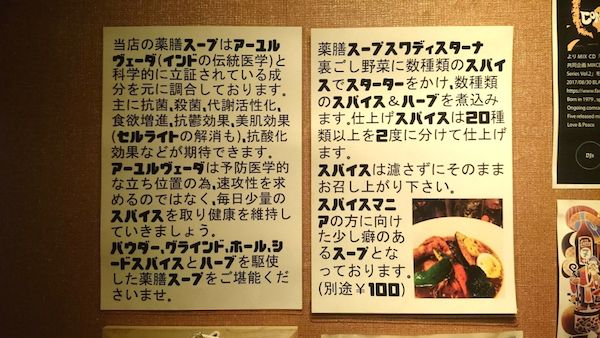 当店の薬膳スープはアーユル
ヴェーダ(インドの伝統医学)と
科学的に立証されている成
分を元に調合しております。
主に抗菌,殺菌,代謝活性化,
食欲増進,抗鬱効果,美肌効果
(セルライトの解消も),抗酸化
効果などが期待できます。
アーユルヴェーダは予防医学的
な立ち位置の為,速攻性を求
めるのではなく,毎日少量の
スパイスを取り健康を維持し
ていきましょう。
パウダー,グラインド,ホール,シ
ードスパイスとハーブを駆使
した薬膳スープをご堪能くだ
さいませ。
薬膳スープスワディスターナ
裏ごし野菜に数種類のスパイ
スでスターターをかけ,数種類
のスパイス&ハーブを煮込み
ます.仕上げスパイスは20種
類以上を2度に分けて仕上げ
ます。
スパイスは濾さずにそのまま
お召し上がり下さい。
スパイスマニ
アの方に向け
た少し癖のあ
るスープとな
っております。
(別途¥100)
より MIX CD「
共同企画 MIXCD
Series Vol.2」を
2017/08/30 BLA
https://www.fac
Born in 1979 , sp
Ongoing comm
Five released mi
Love & Peace
DJs